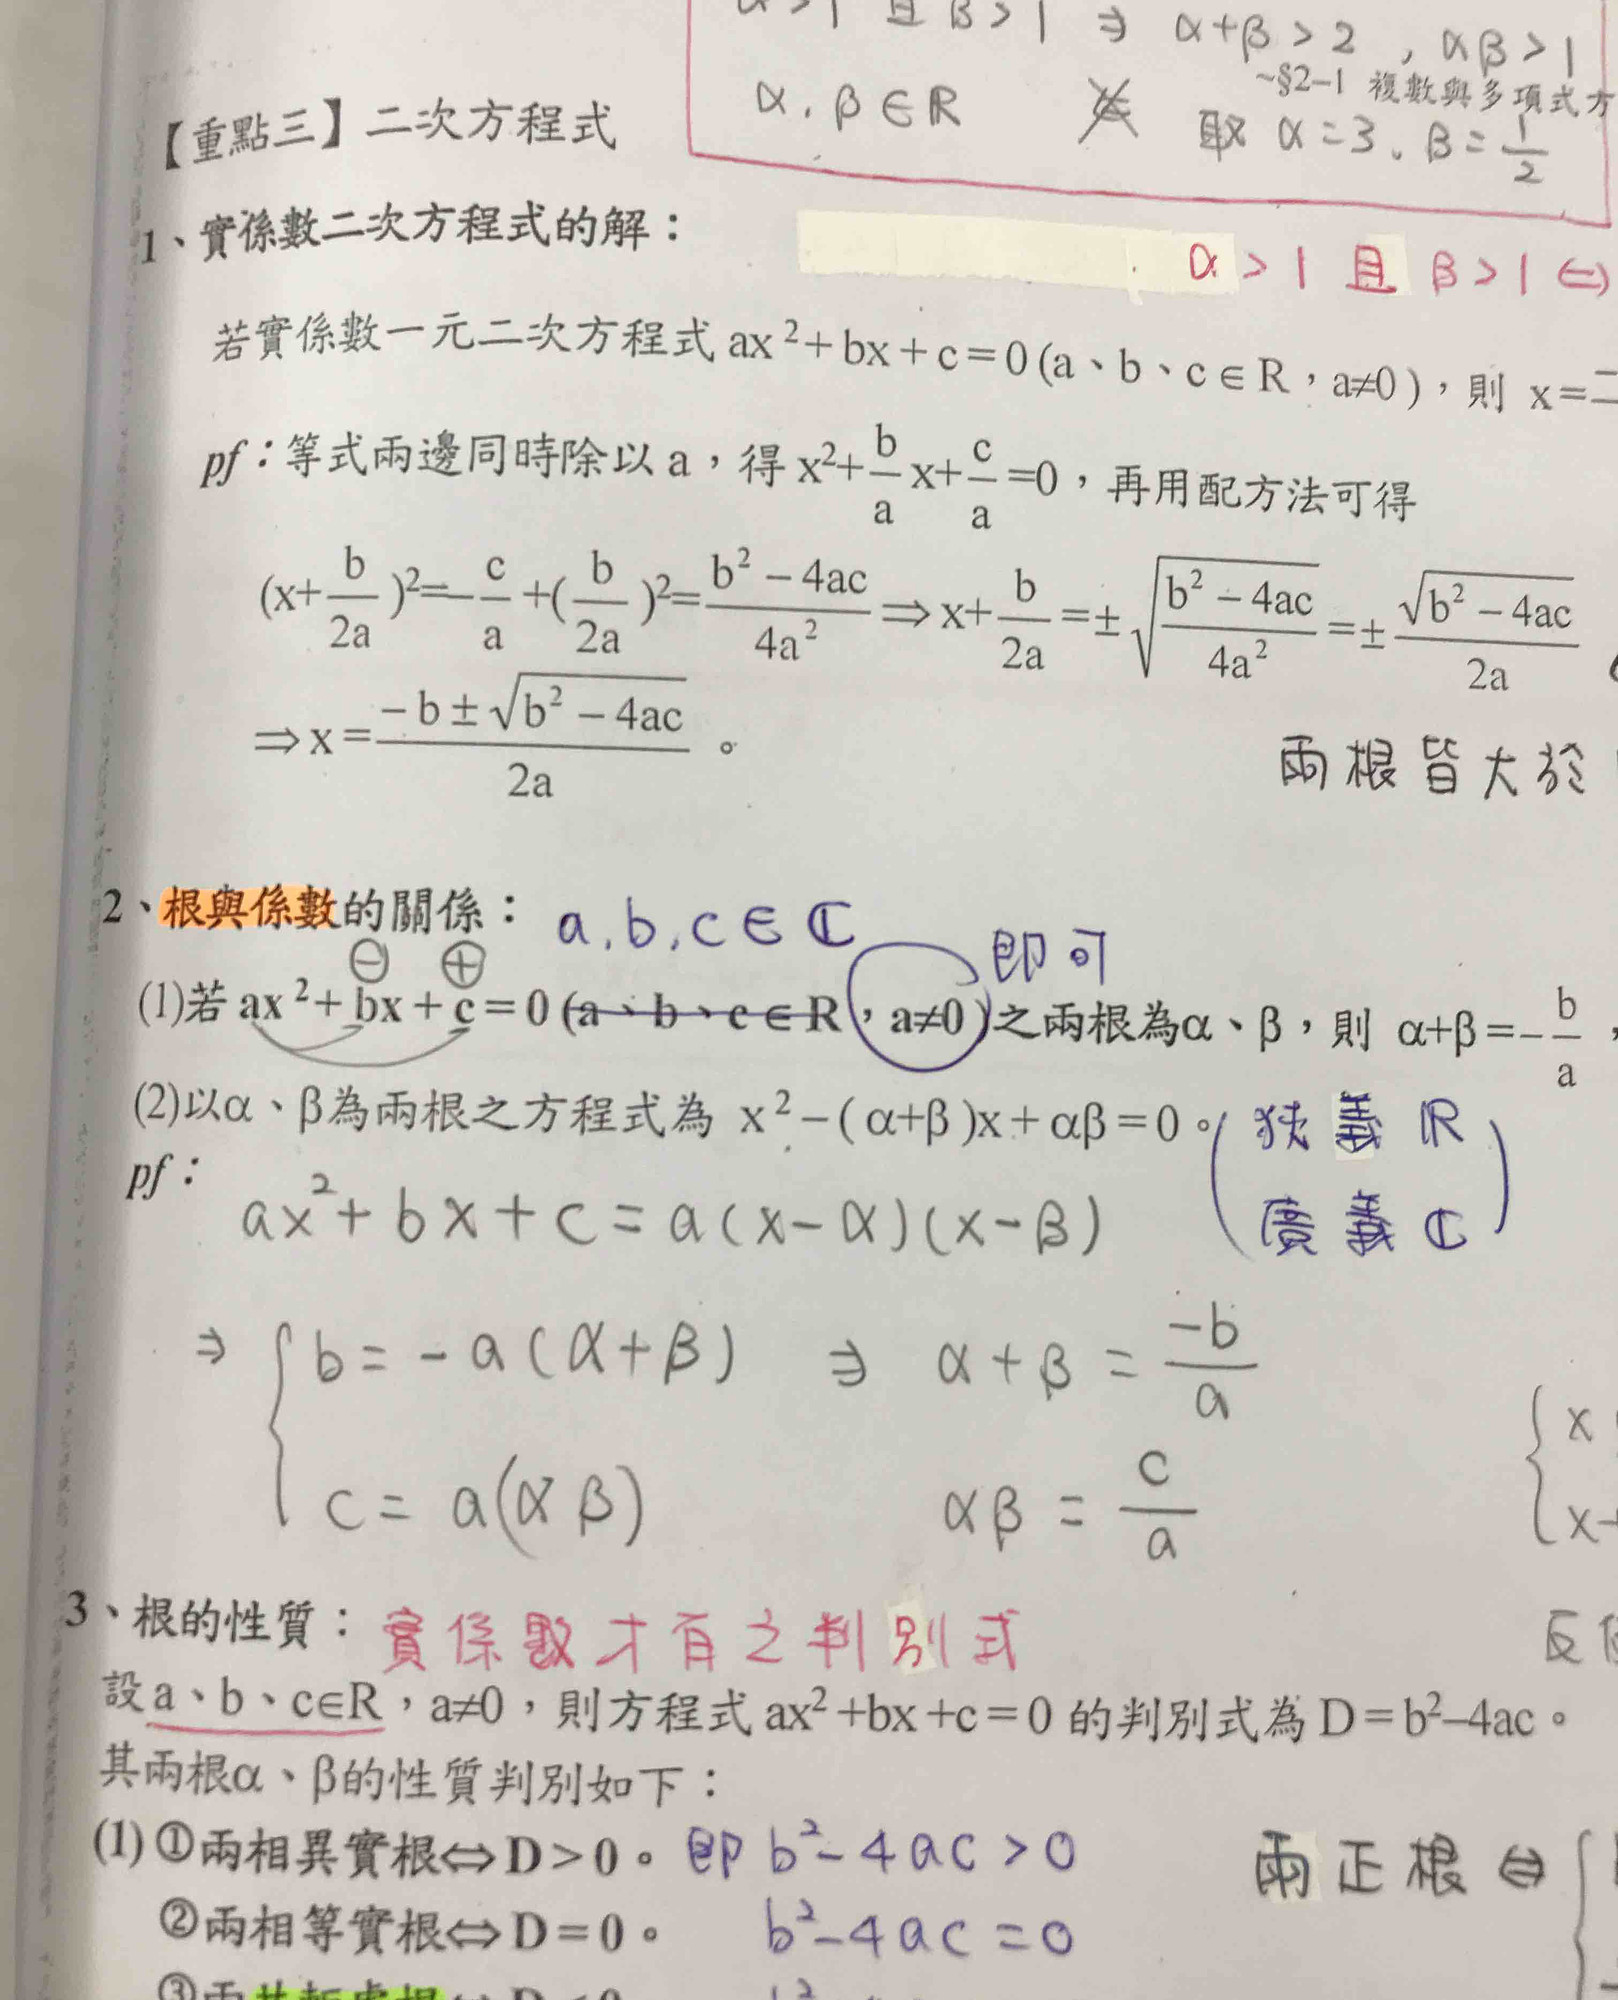 α>1 且 β>1 ⇒ α+β>2 , αβ>1
~§2-1 複數與多項式方
α, β∈R 取 α=3、β=1/2
【重點三】二次方程式
1、實係數二次方程式的解：
α>1 且 β>1 ⇔
若實係數一元二次方程式 ax²+bx+c=0(a、b、c∈R，a≠0)，則 x=
pf：等式兩邊同時除以 a，得 x²+b/a x+c/a=0，再用配方法可得
(x+b/2a)²=-c/a+(b/2a)²=(b²-4ac)/4a²⇒x+b/2a=±√((b²-4ac)/4a²)=±√(b²-4ac)/2a
⇒x=(-b±√(b²-4ac))/2a。
兩根皆大於
2、根與係數的關係： a, b, c∈ℂ
⊖ ⊕ 即可
(1)若 ax²+bx+c=0(a、b、c∈R，a≠0)之兩根為α、β，則 α+β=-b/a，
(2)以α、β為兩根之方程式為 x²-(α+β)x+αβ=0。(狹義 ℝ
廣義 ℂ)
pf：
ax²+bx+c=a(x-α)(x-β)
⇒ {b=-a(α+β) ⇒ α+β=-b/a
c=a(αβ) αβ=c/a
{x
x-
3、根的性質：實係數才有之判別式
設a、b、c∈R，a≠0，則方程式 ax²+bx+c=0 的判別式為 D=b²–4ac。
其兩根α、β的性質判別如下：
(1)①兩相異實根⇔D>0。即 b²-4ac>0
兩正根 ⇔ {
②兩相等實根⇔D=0。 b²-4ac=0